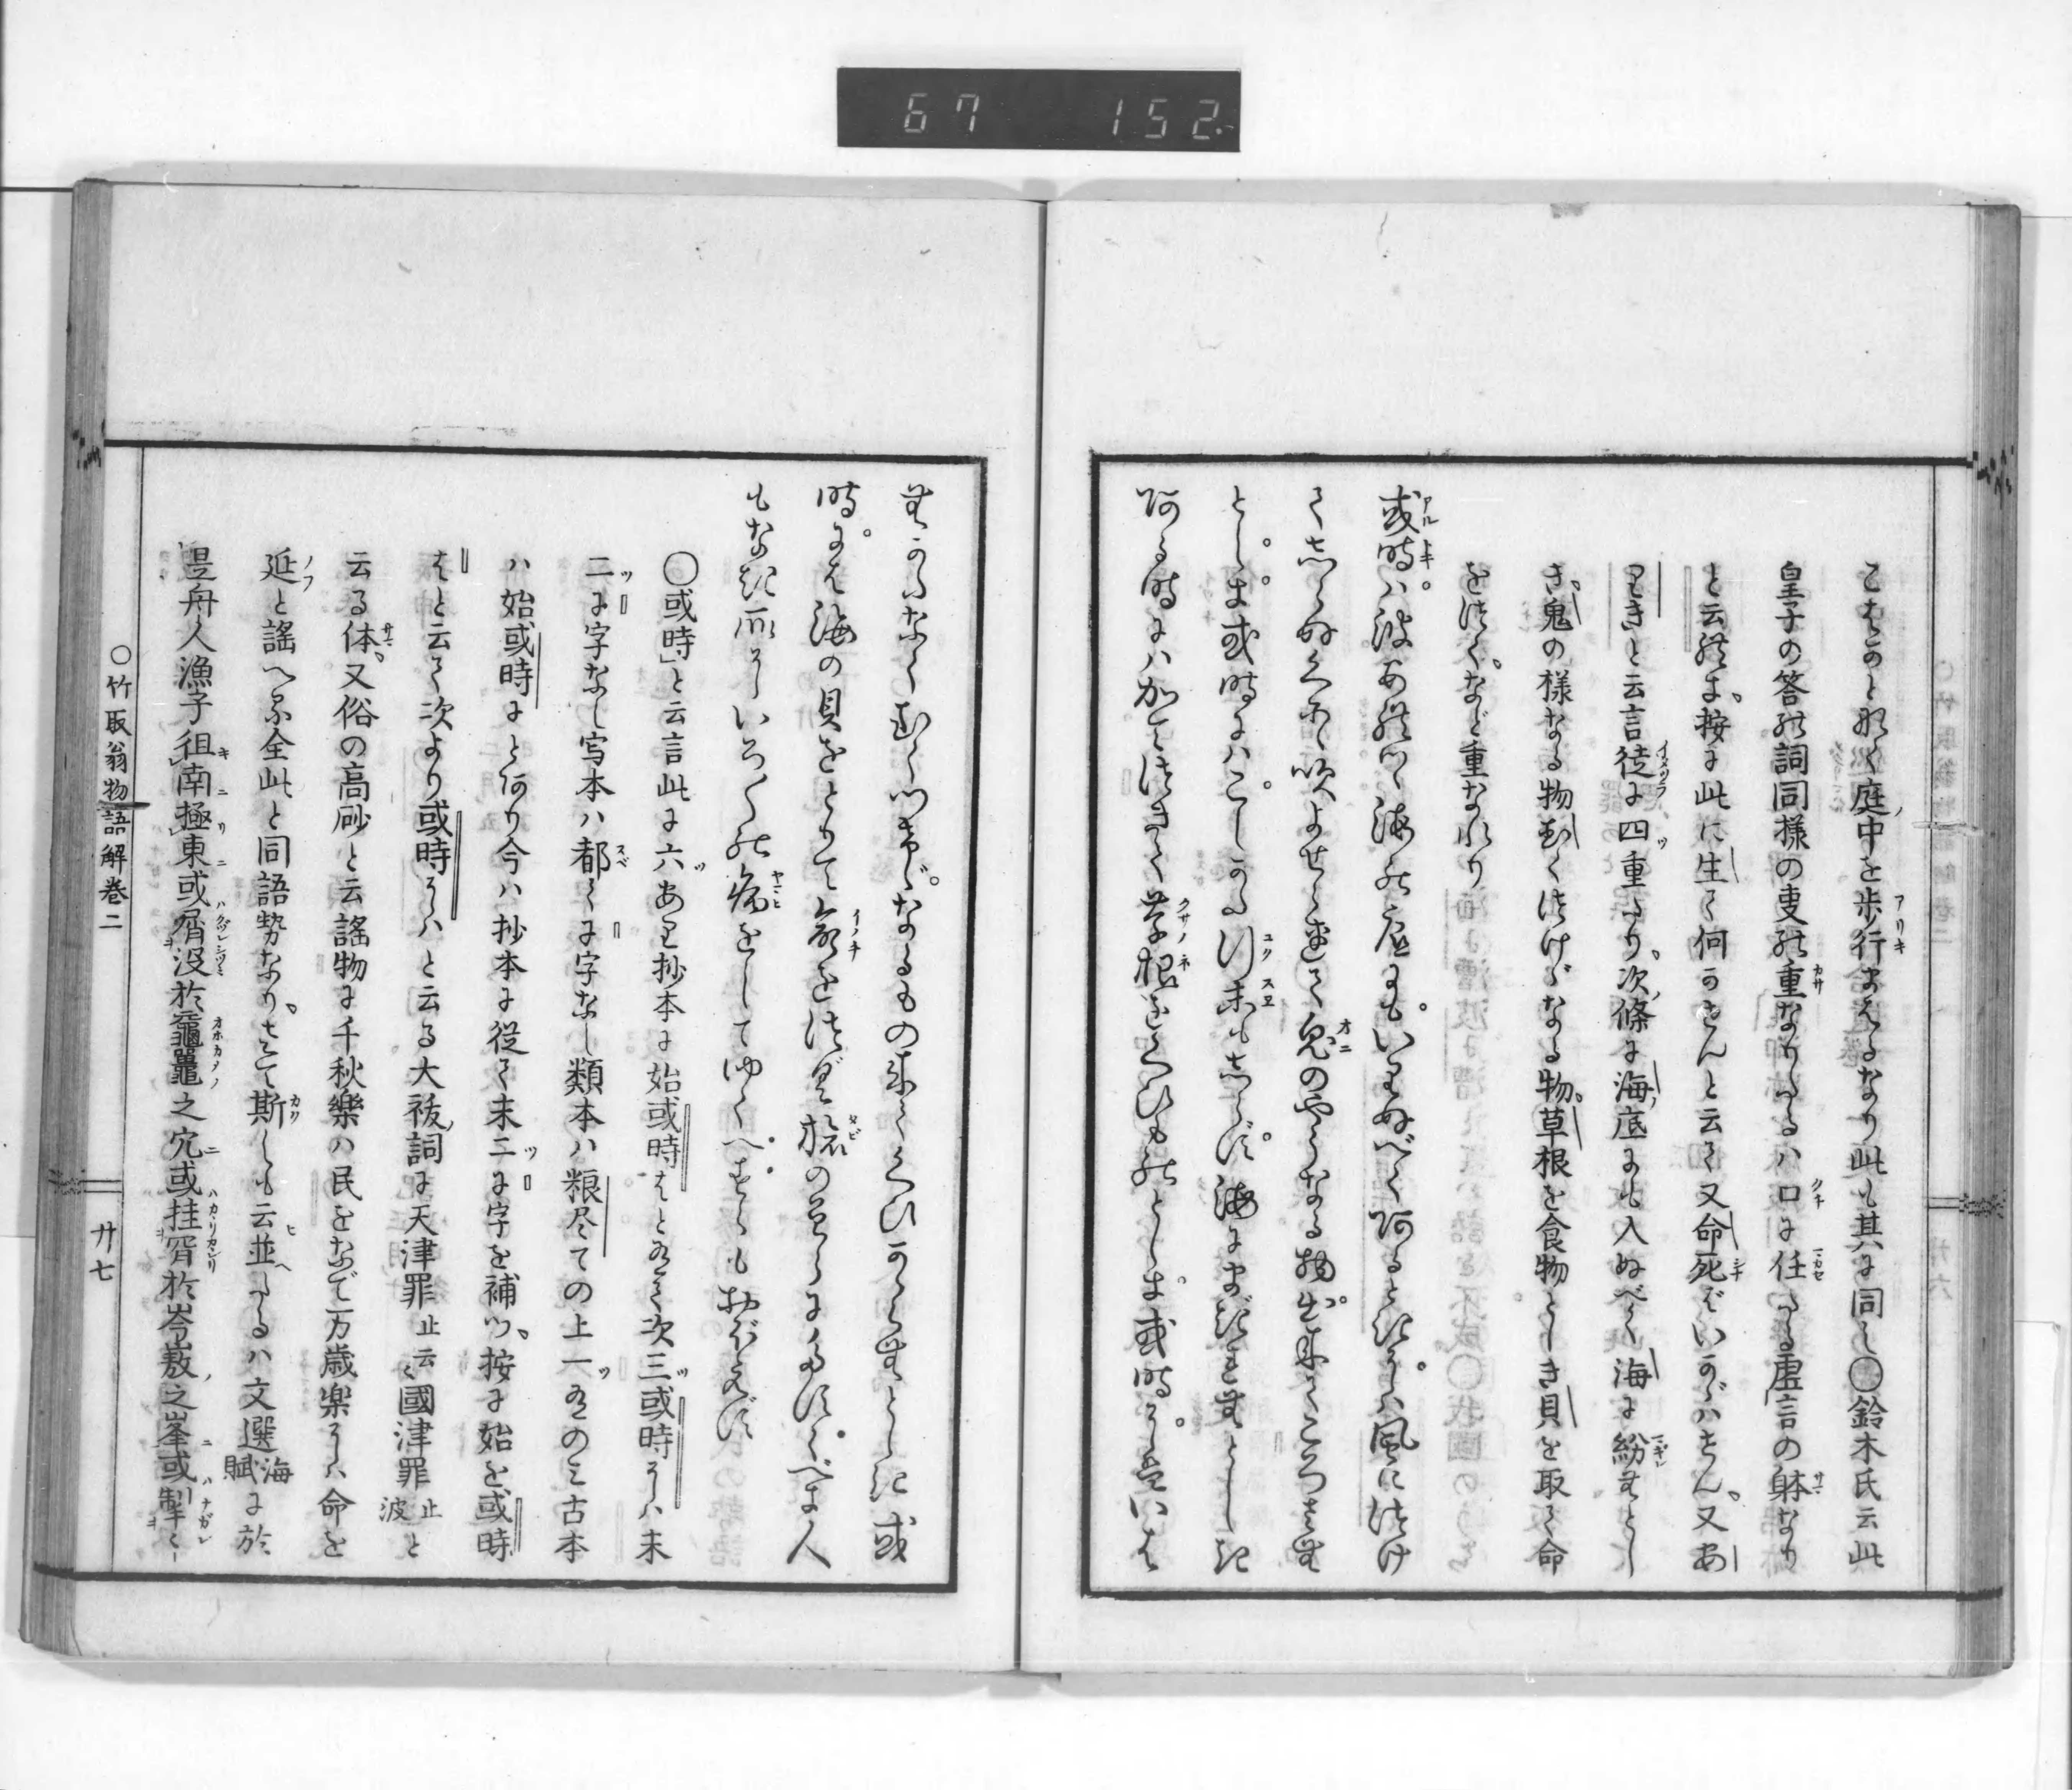 67 152
こをのと形く庭中を歩行まえるなり此も其六に同し〇鈴木氏云此
皇子の答の詞同様の叓の重なりたるハ口に任たる虚言の躰なり
と云れき按に此に生て何かせんと云て又命死なバいかゞハせん又あ
りきと云言徒に四重たり次條に海底にも入ぬべく海に紛れむとし
き鬼の様なる物むくつけげなる物草根を食物としき貝を取て命
をつぐなど重なれり
或時ハ波あれつゝ海の底にもいりぬべく阿るときにハ風につけ
てしらぬ国に吹よせられて鬼のやうなる物出来てころさむ
としき或時にハこしかた行末もしらず海にまぎれむとしき
阿る時にハかてつきて草根をくひものとしき或時にハいは
むかたなくむくつけゞなるもの来てくひかゝらむとしき或
時にハ海の貝をとりて命をつぎ旅の空にたすくべき人
もなき所にいろ〳〵の病をしてゆくへすらもおぼえず
〇或時と云言此に六ツあり抄本に始或時はと有て次三ツ或時にハ末
二ツに字なし写本ハ都てに字なし類本ハ粮尽ての上一ツ有のミ古本
ハ始或時にと阿り今ハ抄本に従て末二ツに字を補つ按に始を或時
はと云て次より或時にハと云る大祓詞に天津罪止云〻國津罪止波と
云る体又俗の高砂と云謡物に千秋樂ハ民をなで万歳樂にハ命を
延と謡へる全此と同語勢なりさて斯しも云並へたるハ文選海賦に於
是舟人漁子徂南極東或屑没於黿鼉之穴或挂罥於岑嶅之峯或掣〻
〇竹取翁物語解巻二
廿七